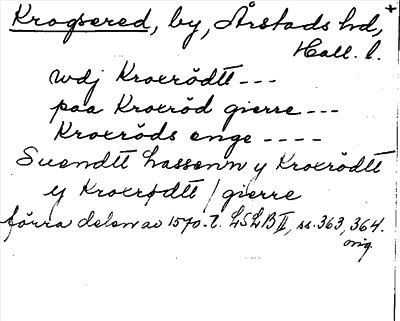 Krogsered, by, Årstads hd, +
Hall. l.
wdj Kroxrödtt ---
paa Kroxröd gierre ---
Kroxröds enge ----
Suendtt Lassenn y Kroxrödtt
y Kroxrødtt / gierre
förra delen av 1570-t. LSLB II, ss. 363, 364.
orig.